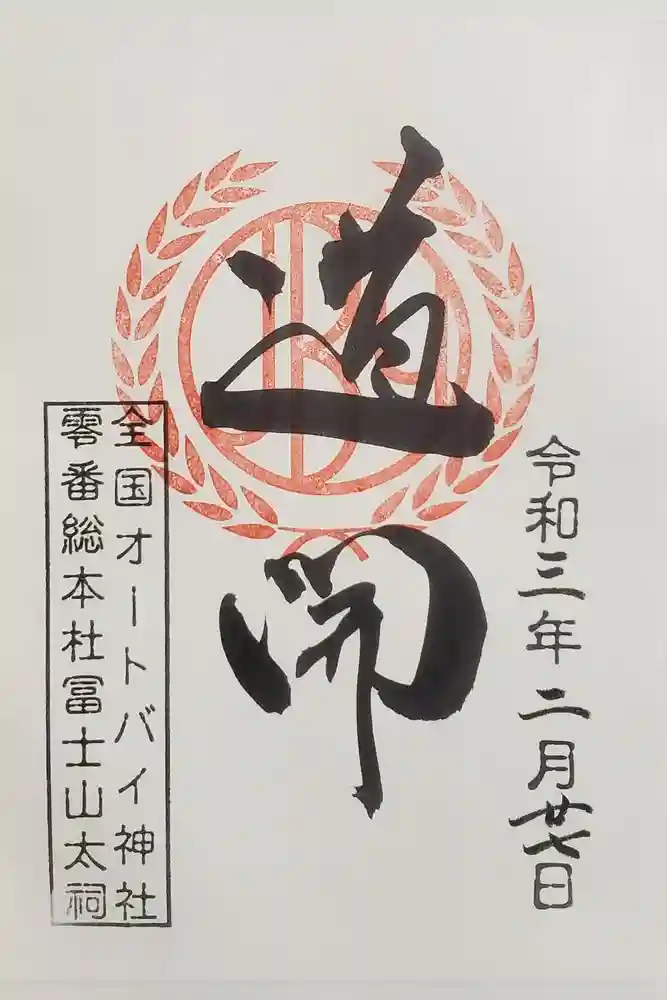 令和三年二月廿七日
道開
全国オートバイ神社
零番総本社冨士山太祠